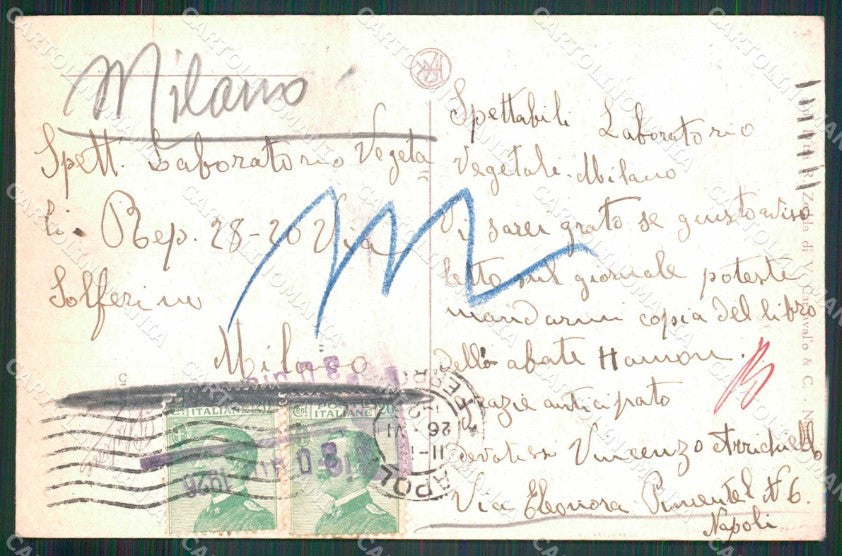 Milano
Spett. Laboratorio Vegeta
li. Rep. 28-20 Via
Solferino
Milano
Spettabili Laboratorio
Vegetale. Milano
Vi sarei grato se giusto aviso
letto sul giornale poteste
mandarmi copia del libro
dello abate Hamon.
Grazie anticipato
Vincenzo
Via Eleonora Pimentel N 6.
Napoli
ITALIANE
ITALIANE
1926
CARTOLINOMANIA